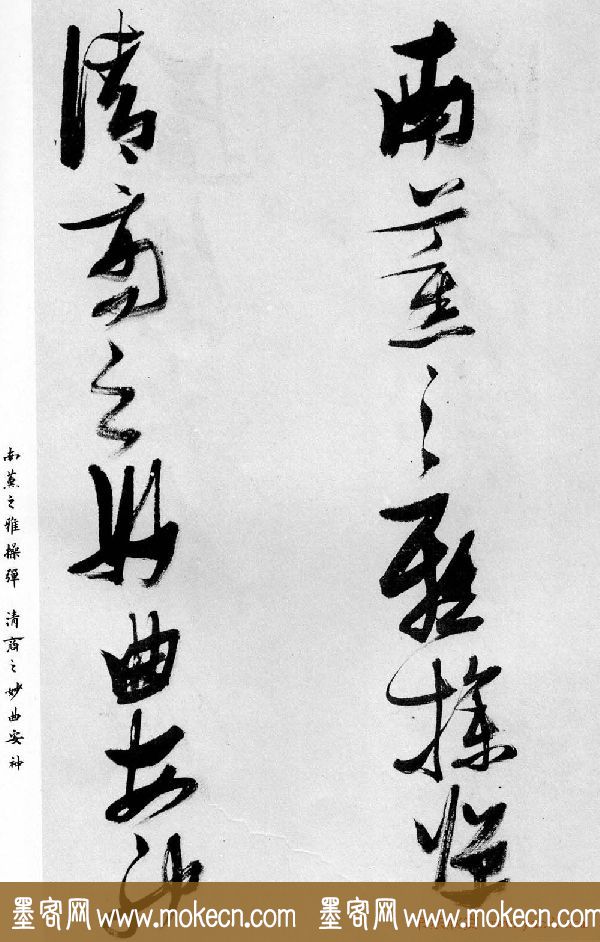 南薰之雅操彈
清商之妙曲安神
南薰之雅操彈 清商之妙曲安神
墨客网 www.mokecn.com 墨客网 www.mokecn.com